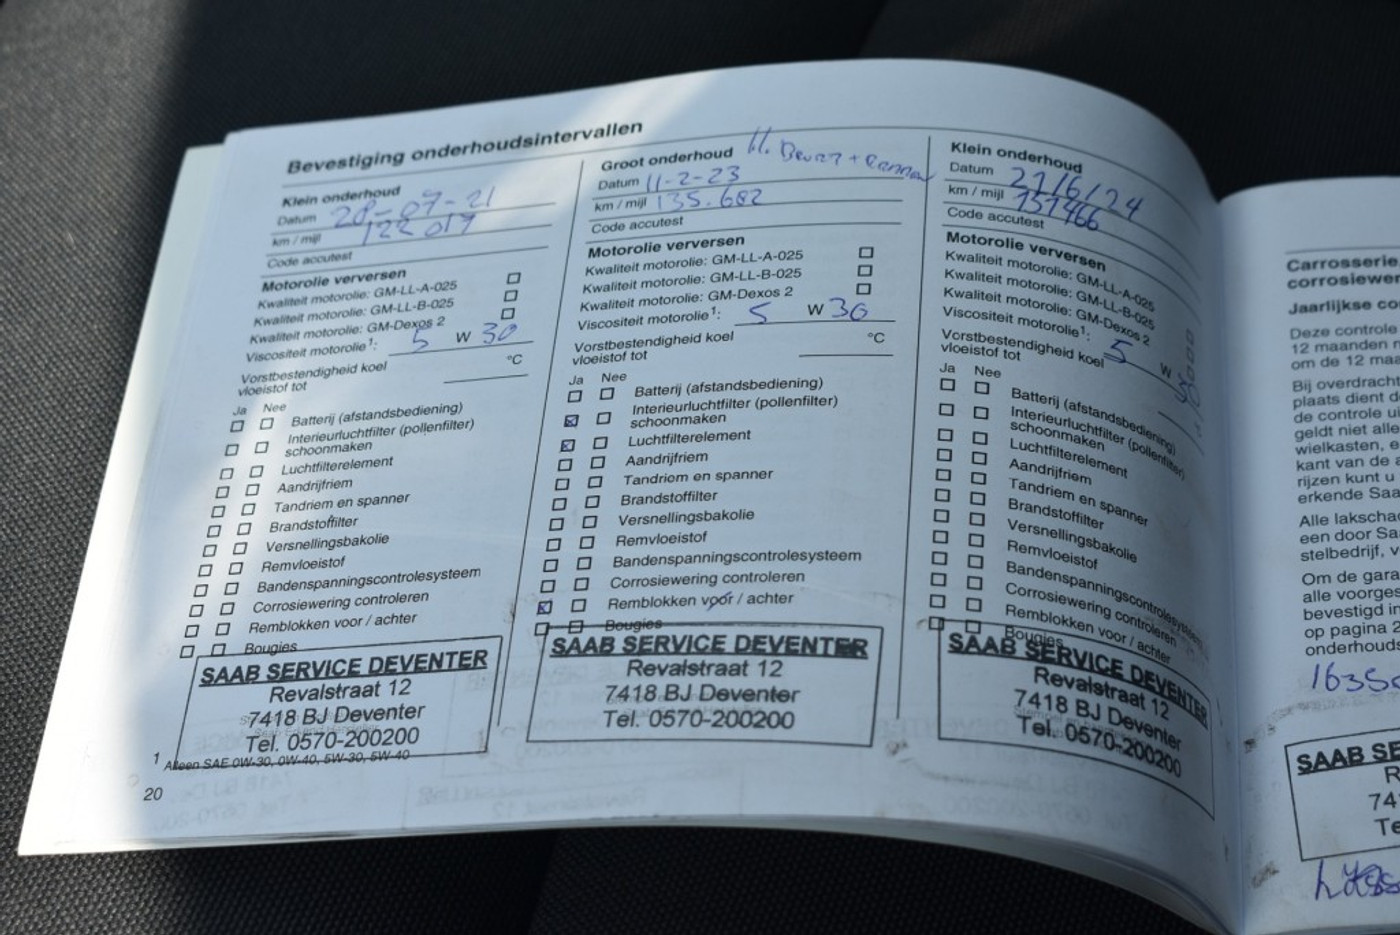 Bevestiging onderhoudsintervallen
Klein onderhoud
Datum 28-07-21
km / mijl 122 017
Code accutest
Motorolie verversen
Kwaliteit motorolie: GM-LL-A-025
Kwaliteit motorolie: GM-LL-B-025
Kwaliteit motorolie: GM-Dexos 2
Viscositeit motorolie¹: 5 W 30
Vorstbestendigheid koel
vloeistof tot °C
Ja Nee
Batterij (afstandsbediening)
Interieurluchtfilter (pollenfilter)
schoonmaken
Luchtfilterelement
Aandrijfriem
Tandriem en spanner
Brandstoffilter
Versnellingsbakolie
Remvloeistof
Bandenspanningscontrolesysteem
Corrosiewering controleren
Remblokken voor / achter
Bougies
SAAB SERVICE DEVENTER
Revalstraat 12
7418 BJ Deventer
Tel. 0570-200200
1 Alleen SAE 0W-30, 0W-40, 5W-30, 5W-40
20
Groot onderhoud
Datum 11-2-23
km / mijl 135.682
Code accutest
Motorolie verversen
Kwaliteit motorolie: GM-LL-A-025
Kwaliteit motorolie: GM-LL-B-025
Kwaliteit motorolie: GM-Dexos 2
Viscositeit motorolie¹: 5 W 30
Vorstbestendigheid koel
vloeistof tot °C
Ja Nee
Batterij (afstandsbediening)
Interieurluchtfilter (pollenfilter)
schoonmaken
Luchtfilterelement
Aandrijfriem
Tandriem en spanner
Brandstoffilter
Versnellingsbakolie
Remvloeistof
Bandenspanningscontrolesysteem
Corrosiewering controleren
Remblokken voor / achter
Bougies
SAAB SERVICE DEVENTER
Revalstraat 12
7418 BJ Deventer
Tel. 0570-200200
Klein onderhoud
Datum 27/6/24
km / mijl 151466
Code accutest
Motorolie verversen
Kwaliteit motorolie: GM-LL-A-025
Kwaliteit motorolie: GM-LL-B-025
Kwaliteit motorolie: GM-Dexos 2
Viscositeit motorolie¹: 5 W 30
Vorstbestendigheid koel
vloeistof tot
Ja Nee
Batterij (afstandsbediening)
Interieurluchtfilter (pollenfilter)
schoonmaken
Luchtfilterelement
Aandrijfriem
Tandriem en spanner
Brandstoffilter
Versnellingsbakolie
Remvloeistof
Bandenspanningscontrolesysteem
Corrosiewering controleren
Remblokken voor / achter
Bougies
SAAB SERVICE DEVENTER
Revalstraat 12
7418 BJ Deventer
Tel. 0570-200200
Carrosserie
corrosiewe
Jaarlijkse co
Deze controle
12 maanden n
om de 12 maa
Bij overdracht
plaats dient de
de controle u
geldt niet alle
wielkasten, e
kant van de a
rijzen kunt u
erkende Saa
Alle lakscha
een door Sa
stelbedrijf, v
Om de gara
alle voorges
bevestigd in
op pagina 2
onderhouds
1635
SAAB SE
R
74
Te